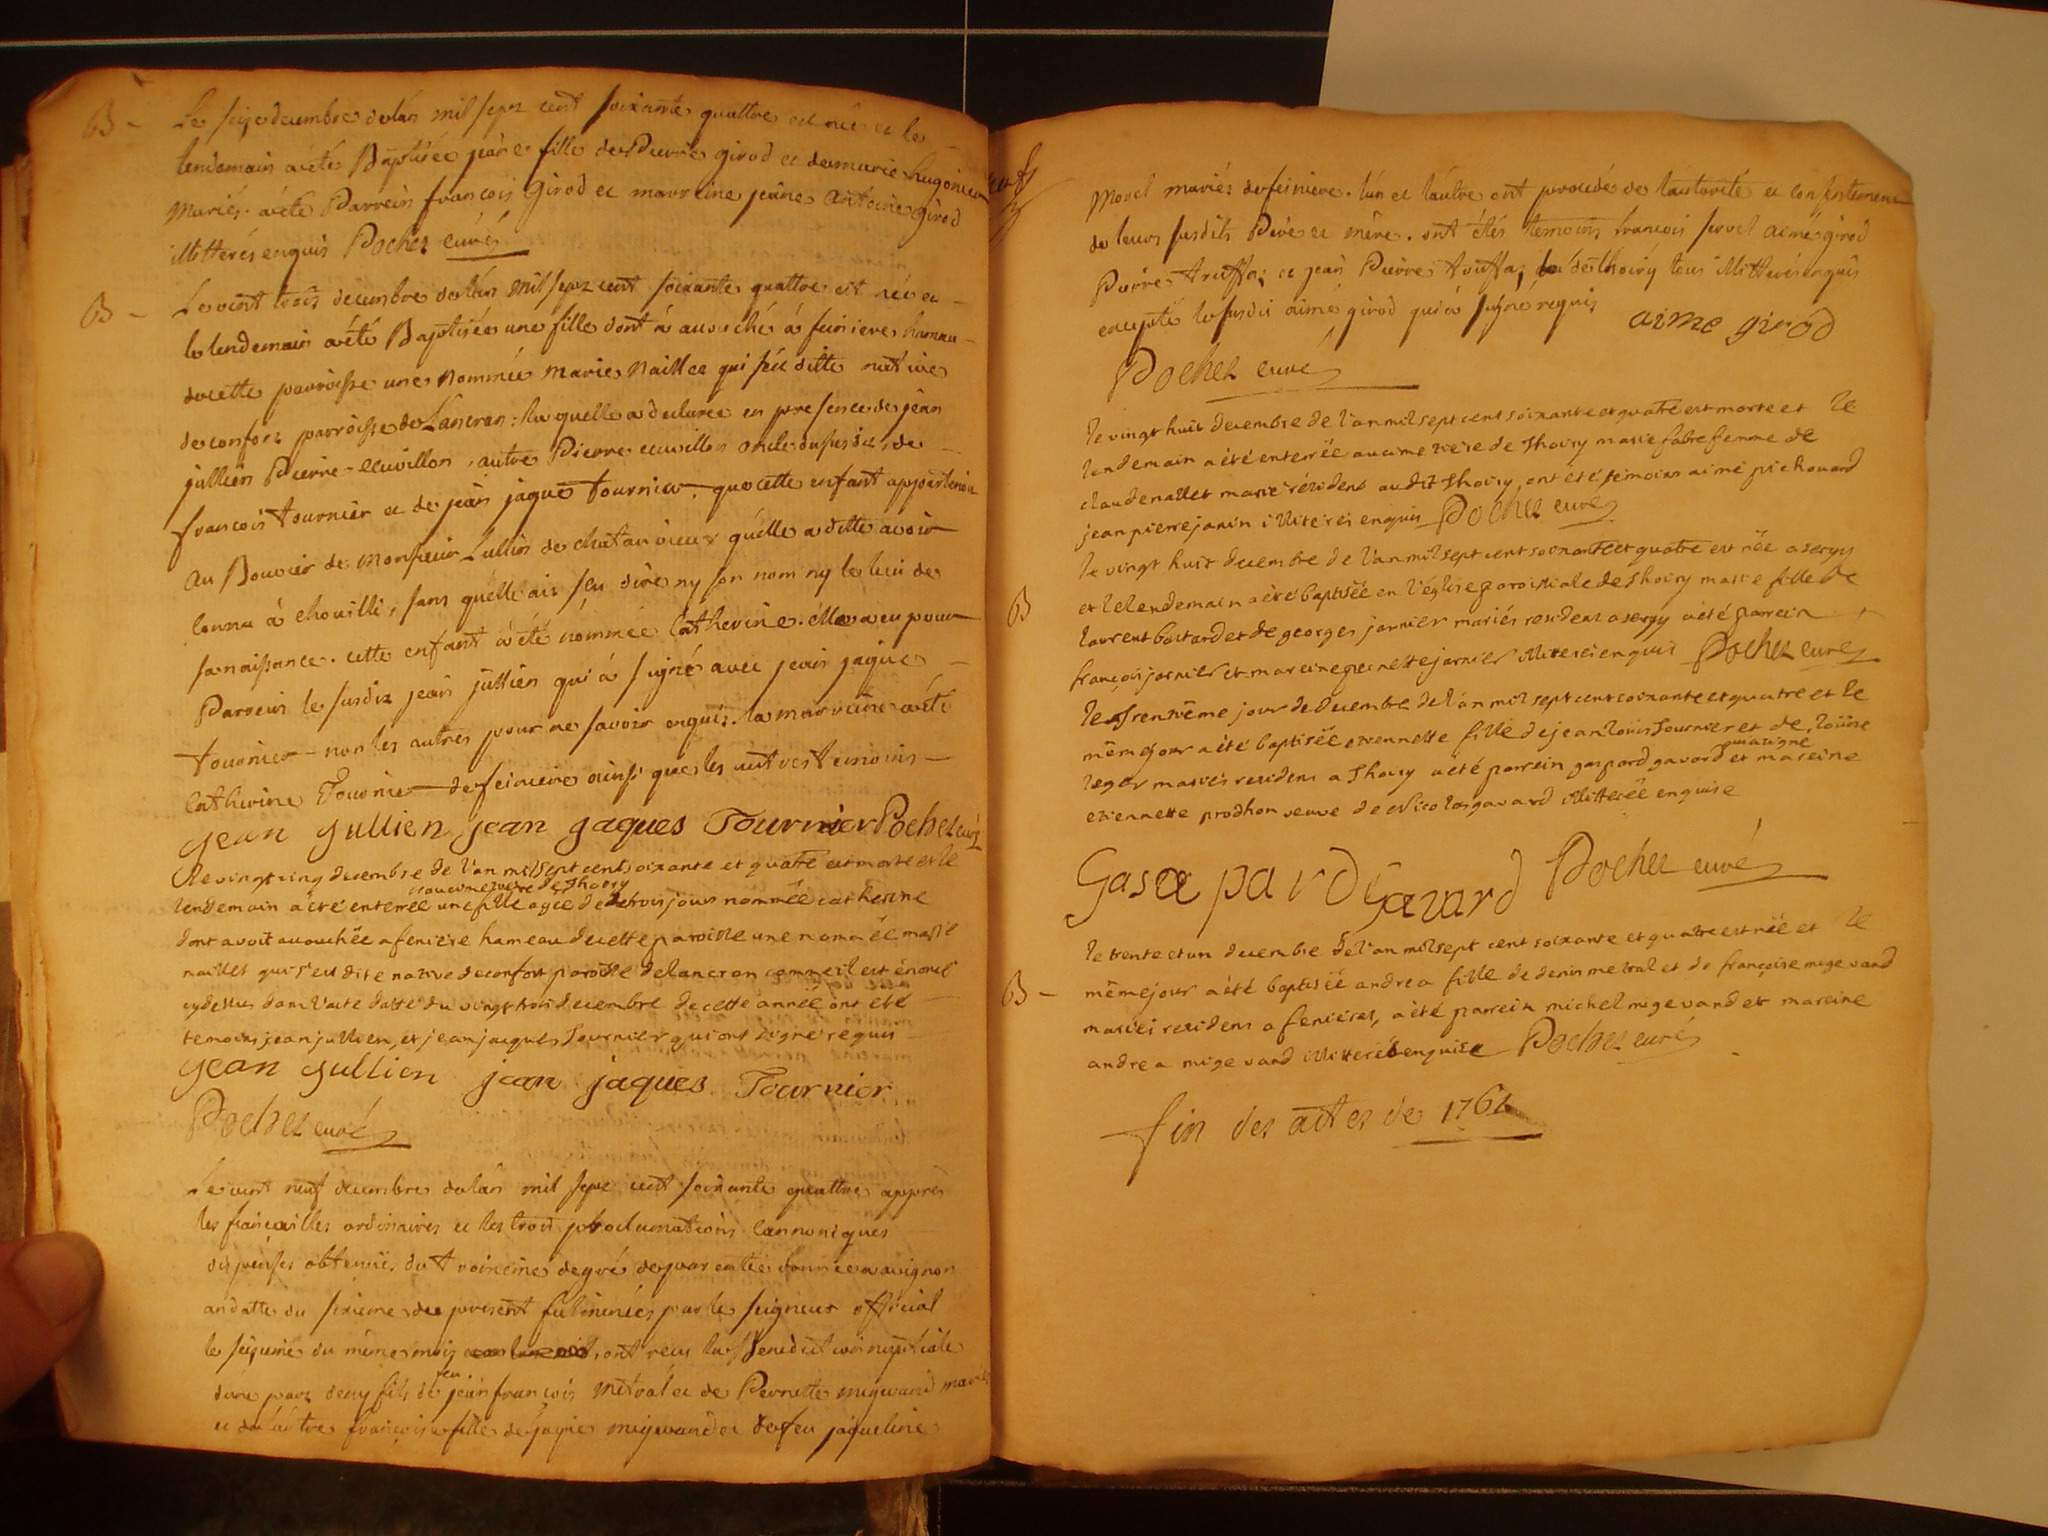 B - Le seize decembre de lan mil sept cent soixante quattre est née et le
lendemain a été Baptisée jeane fille de Pierre girod et de marie hugonier
Mariés. a été Parrein francois Girod et marreine jeane Antoine girod
illitterés enquis Pochez curé
B - Le vint trois decembre de lan mil sept cent soixante quattre est née et
le lendemain a été Baptisée une fille dont à accouché à feiniere hamau
de cette parroisse une nommée marie Naillet qui s'est ditte native
de confort parroisse de Lancran : la quelle a declaree en presence de jean
jullien Pierre Ecuvillon, autre Pierre ecuvillon oncle du susdit, de
françois tournier et de jean jaque tournier. que cette enfant appartenoit
au Bouvier de Monsieur Lullin de chatauvieux quelle a ditte avoir
connu à chouilli, sans quelle ait seu dire ny son nom ny le lieu de
sa naissance. cette enfant à été nommée Catherine. elle a eu pour
Parrein le susdit jean jullien qui à signé avec jean jaque
tournier non les autres pour ne savoir enquis. la marreine a été
Catherine Tournier de feiniere ainsi que les autres temoins
jean jullien jean jaques Tournier Pochez curé
Le vingt cinq decembre de l'an mil sept cent soixante et quatre est morte et le
au cimetiere de Thoiry
lendemain a été enterrée une fille agée de trois jours nommée catherine
dont avoit accouchée a feniere hameau de cette paroisse une nomée marie
naillet qui s'est dite native de confort paroisse de lancran comme il est énoncé
cy dessus dans l'acte datté du vingt trois decembre de cette année ont été
temoins jean jullien, et jean jacques Tournier qui ont signé requis
jean jullien jean jaques Tournier
Pochez curé
Le vint neuf decembre de lan mil sept cent soixante quattre appres
les fiancailles ordinaires et les trois proclamations cannoniques
dispenses obtenues du troisieme degré de parentée donnée a avignon
en datte du sixieme du present fulminées par le seigneur official
le seizieme du meme mois ont recu la Benediction nuptiale
feu
dune part deny fils de jean francois Metral et de Pernette migevand mariés
et de lautre francoise fille de jaque migevand et de feu jaqueline
Morel mariés de feiniere. lun et lautre ont procedé de lautorité et consentement
de leurs susdits Pére et mére. ont étés temoins francois servel aimé girod
Pierre truffaz et jean Pierre truffaz de thoiry tous illitterés enquis
excepté le susdit aimé girod qui à signé requis aime girod
Pochez curé
le vingt huit decembre de l'an mil sept cent soixante et quatre est morte et le
lendemain a été enterrée au cimetiere de Thoiry marie fabre femme de
claude nallet marié résident audit Thoiry, ont été temoins aimé pichouard
jean pierre janin illiterés enquis Pochez curé
le vingt huit decembre de l'an mil sept cent soixante et quatre est née a sergy
B et le lendemain a été baptisée en l'église paroissiale de Thoiry marie fille de
laurent bastard et de george jarnier mariés residens a sergy a été parrein
françois jarnier et mareine pernette jarnier illiterés enquis Pochez curé
le trentième jour de decembre de l'an mil sept cent soixante et quatre et le
même jour a été baptisée etiennette fille de jean louis Tournier et de louise
qui a signé
leger mariés residens a Thoiry a été parrein gaspard gavard et mareine
etiennette prodhon veuve de nicolas gavard illitterée enquise
Gaspard Gavard Pochez curé
le trente et un decembre de l'an mil sept cent soixante et quatre est née et le
B - même jour a été baptisée andrea fille de denis metral et de françoise migevand
mariés residens a fenieres, a été parrein michel migevand et mareine
andrea migevand illitterés enquise Pochez curé
fin des actes de 1764